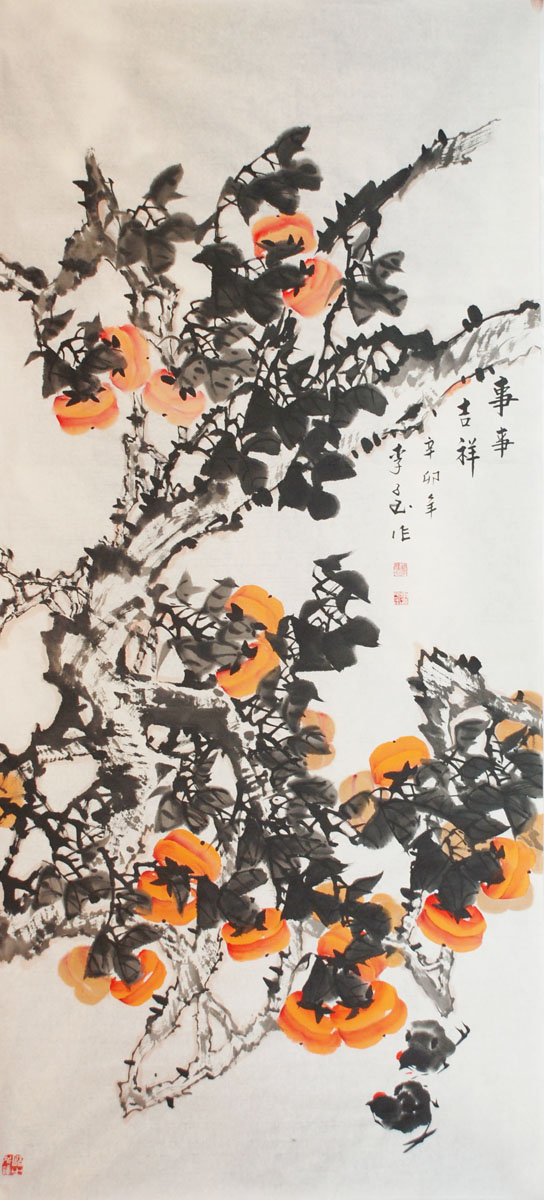 事事
吉祥
辛卯年
李子玉作